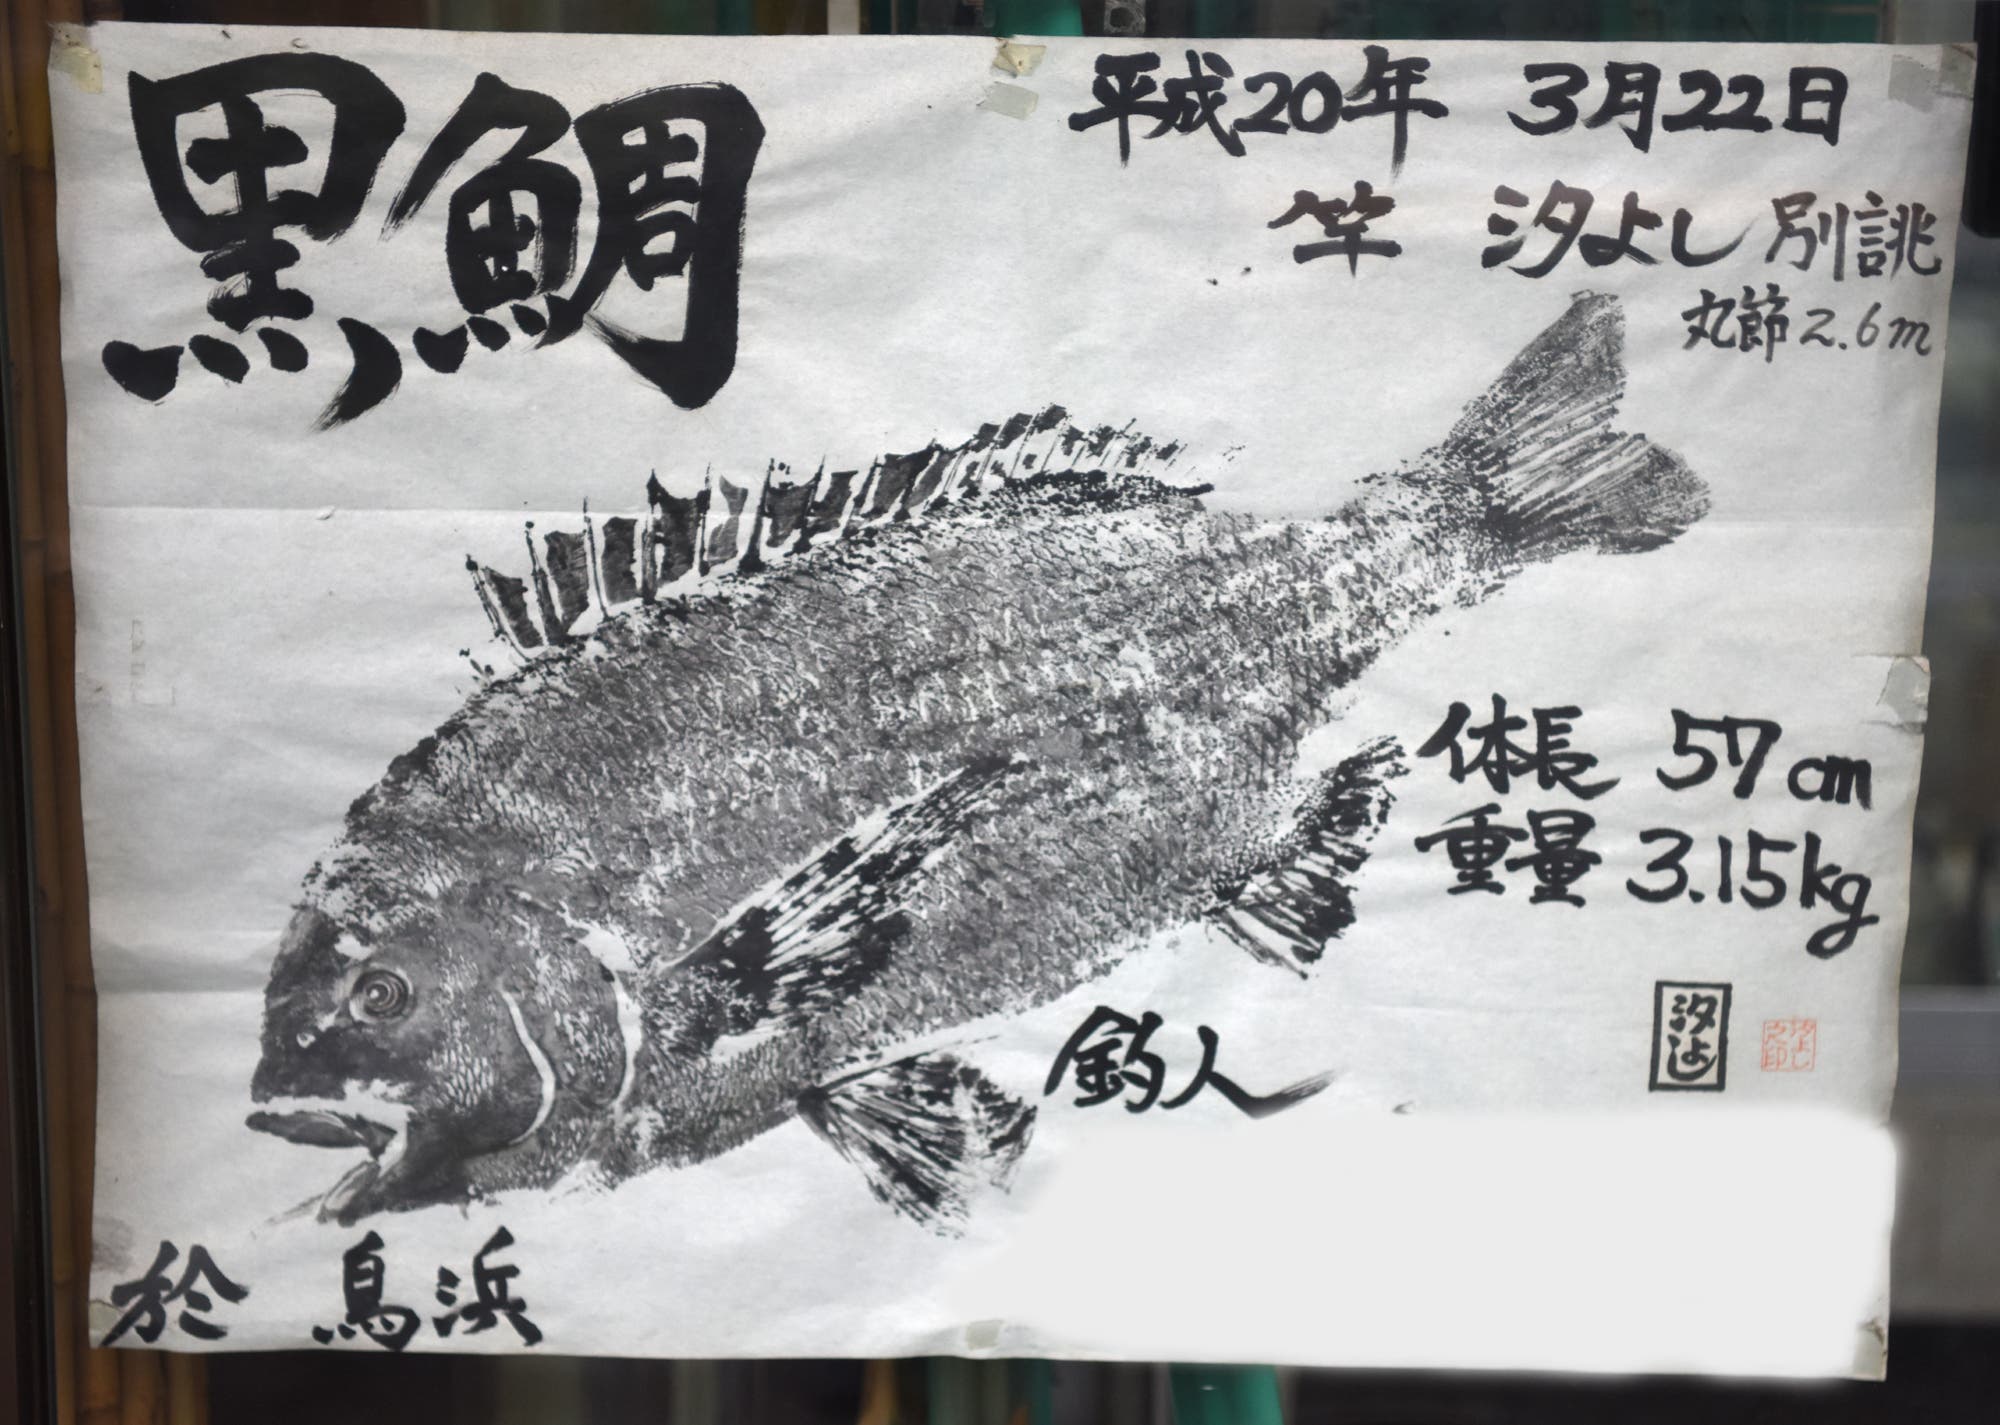 黒鯛
平成20年 3月22日
竿 汐よし 別誂
丸節 2.6m
体長 57cm
重量 3.15kg
汐よし
釣人
於 鳥浜